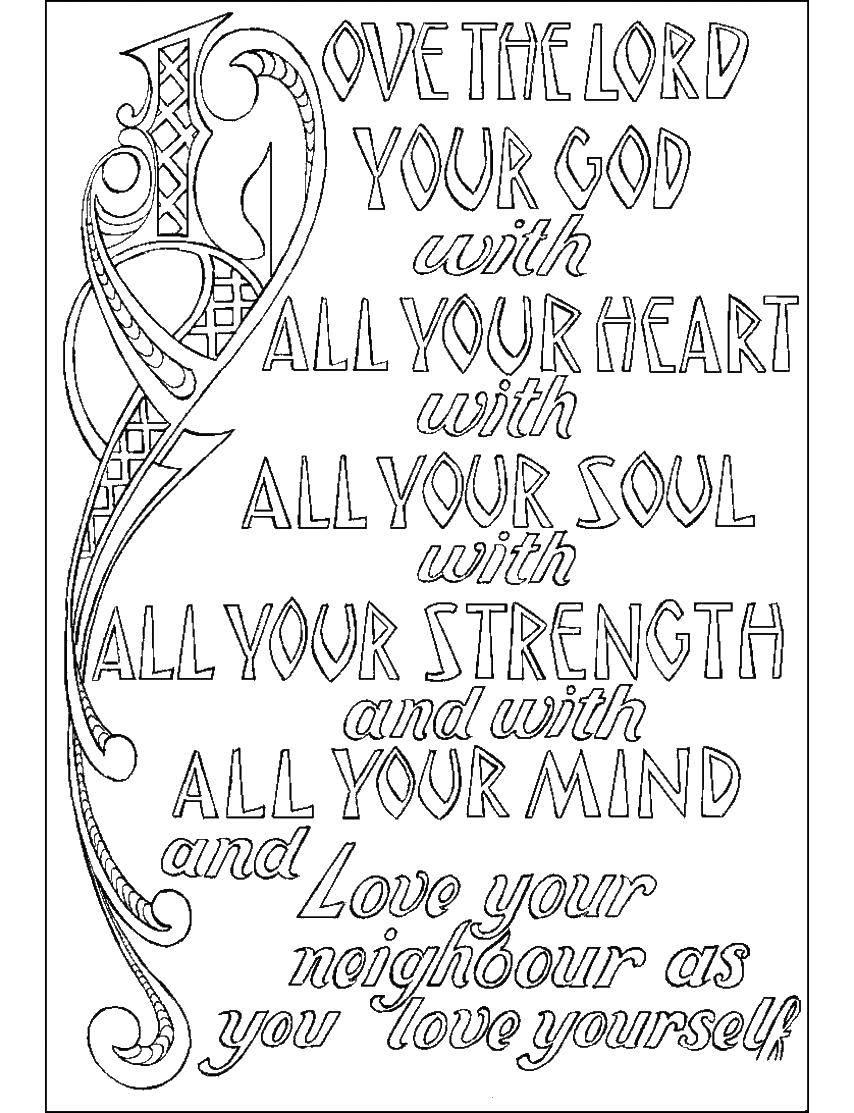 LOVE THE LORD
YOUR GOD
with
ALL YOUR HEART
with
ALL YOUR SOUL
with
ALL YOUR STRENGTH
and with
ALL YOUR MIND
and Love your
neighbour as
you love yourself